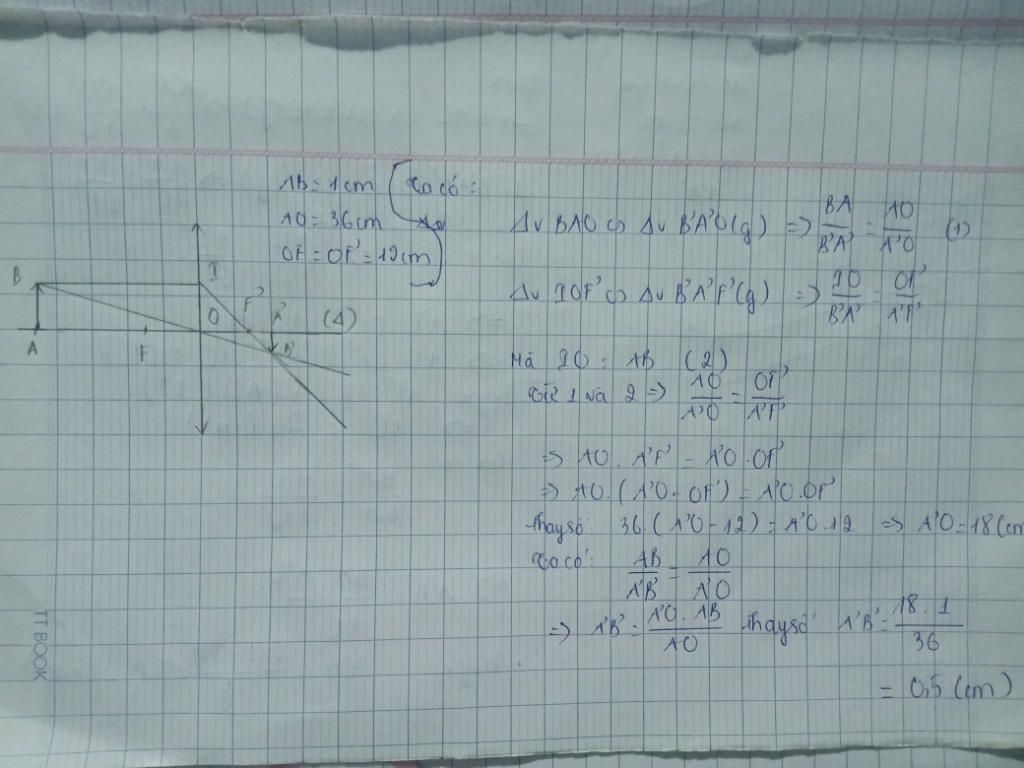 AB = 1cm
AO = 36cm
OF = OF' = 12cm
Ta có:
Δv BAO ∽ Δv B'A'O (g) => BA/B'A' = AO/A'O (1)
Δv IOF' ∽ Δv B'A'F' (g) => IO/B'A' = OF'/A'F'
Mà IO = AB (2)
Từ 1 và 2 => AO/A'O = OF'/A'F'
=> AO . A'F' = A'O . OF'
=> AO . (A'O - OF') = A'O . OF'
thay số: 36 . (A'O - 12) = A'O . 12 => A'O = 18 (cm
Ta có: AB/A'B' = AO/A'O
=> A'B' = A'O . AB/AO thay số A'B' = 18 . 1/36
= 0,5 (cm)
B
I
F'
A'
O
(Δ)
A
F
B'
TT BOOK